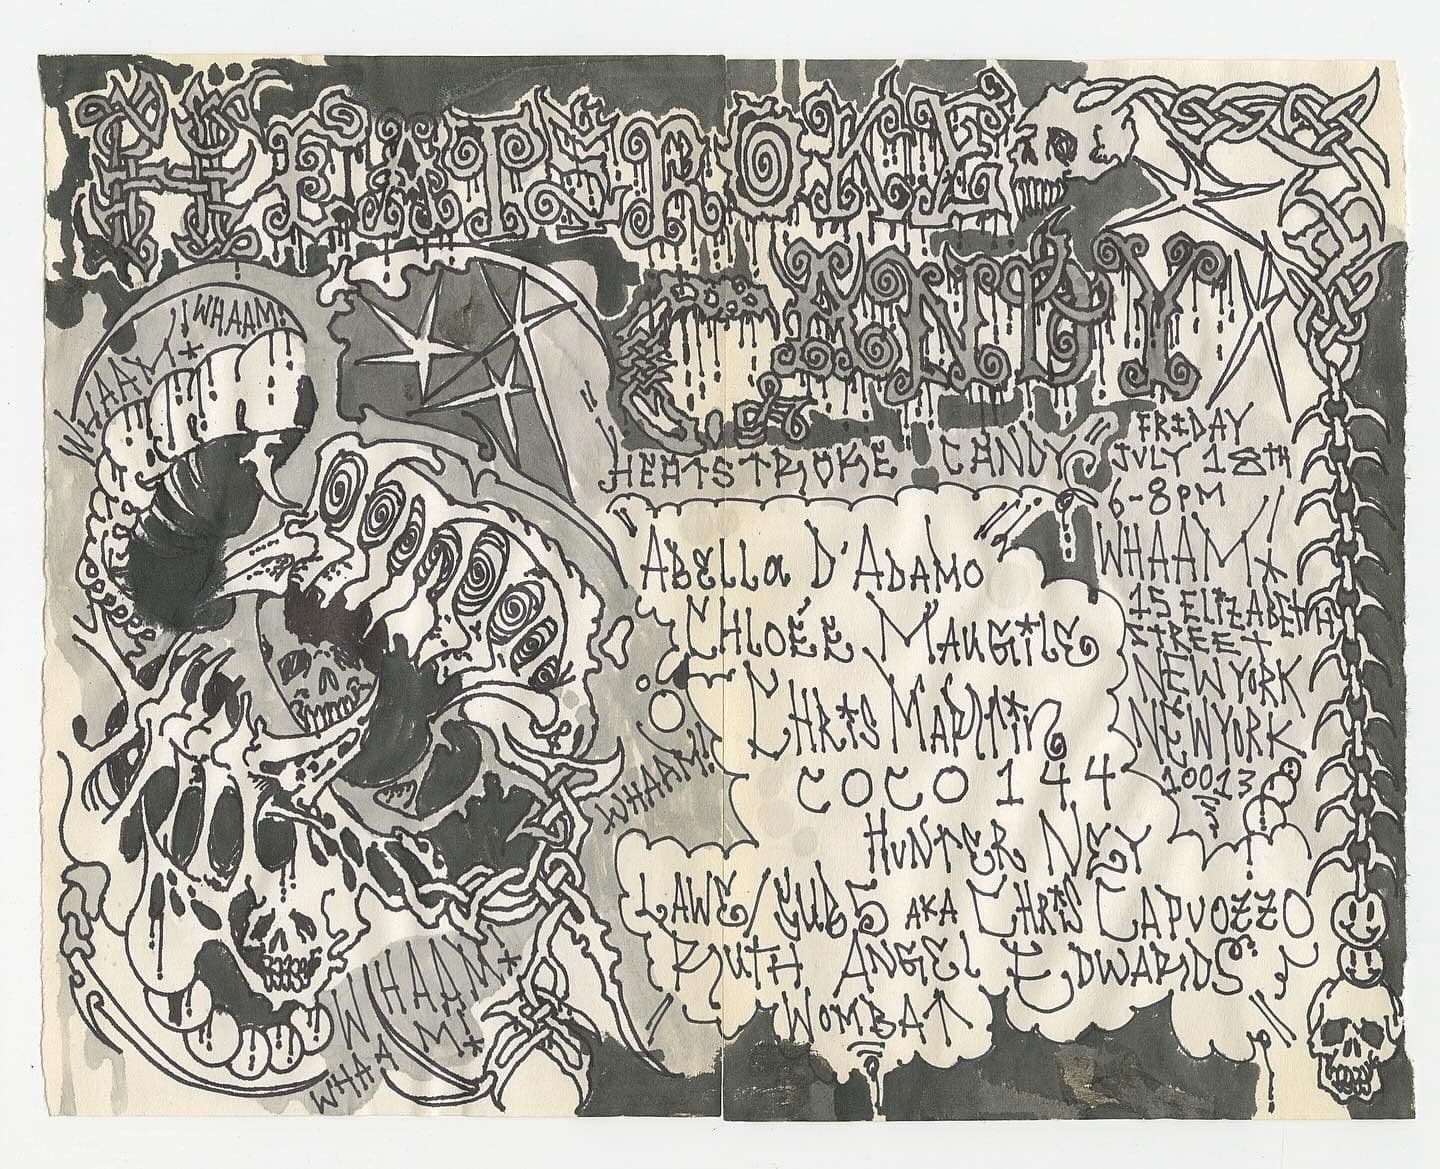 HEATSTROKE
CANDY
WHAAM!
WHAAM!
HEATSTROKE CANDY
FRIDAY
JULY 18TH
6-8PM
WHAAM!
15 ELIZABETH
STREET
NEW YORK
NEW YORK
10013
ABELLA D'ADAMO
CHLOÉÉ MAUGILE
CHRIS MARTIN
COCO 144
HUNTER NEY
LAWE/SUB5 AKA CHRIS CAPUOZZO
RUTH ANGEL EDWARDS
WOMBAT
WHAAM!!
WHAAM!
WHAAM!